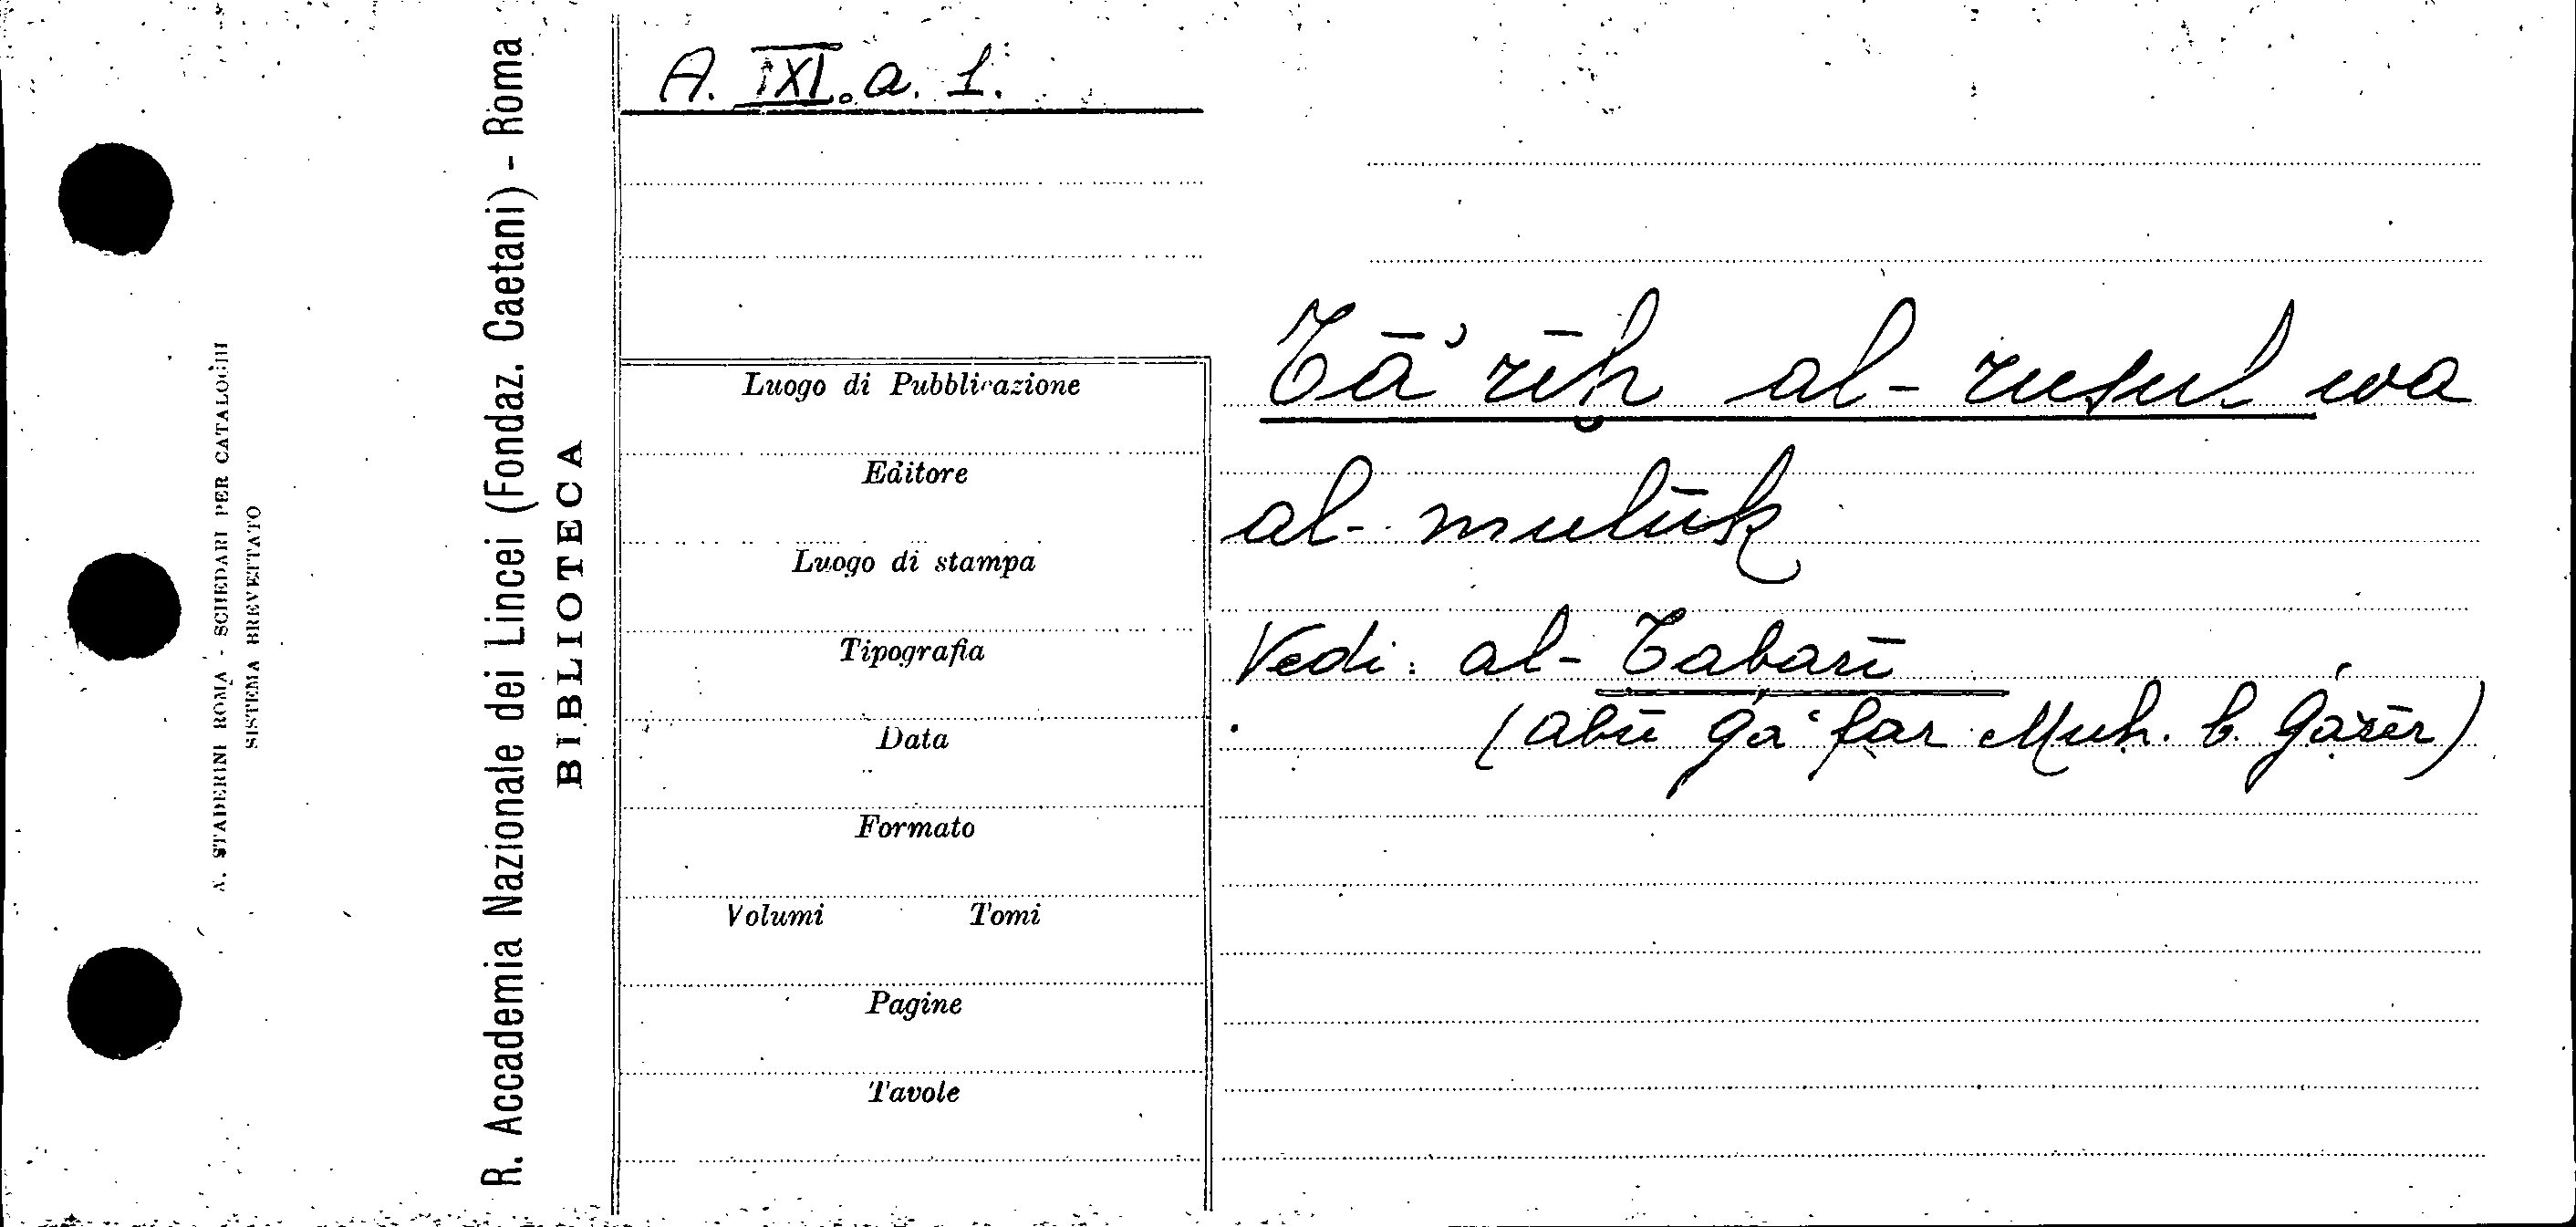 A. IXI. a. 1.
R. Accademia Nazionale dei Lincei (Fondaz. Caetani) - Roma
BIBLIOTECA
A. STADERINI ROMA - SCHEDARI PER CATALOGHI
SISTEMA BREVETTATO
Luogo di Pubblicazione
Editore
Luogo di stampa
Tipografia
Data
Formato
Volumi Tomi
Pagine
Tavole
Tā'rīḫ al-rusul wa
al-mulūk
Vedi: al-Tabarī
(abū Ga‘far Muh. b. Garīr)